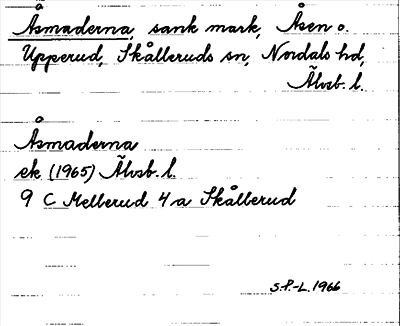 Åsmaderna, sank mark, Åsen o.
Upperud, Skålleruds sn, Nordals hd,
Älvsb. l.
Åsmaderna
ek (1965) Älvsb. l.
9 C Mellerud 4 a Skållerud
S.P.-L. 1966